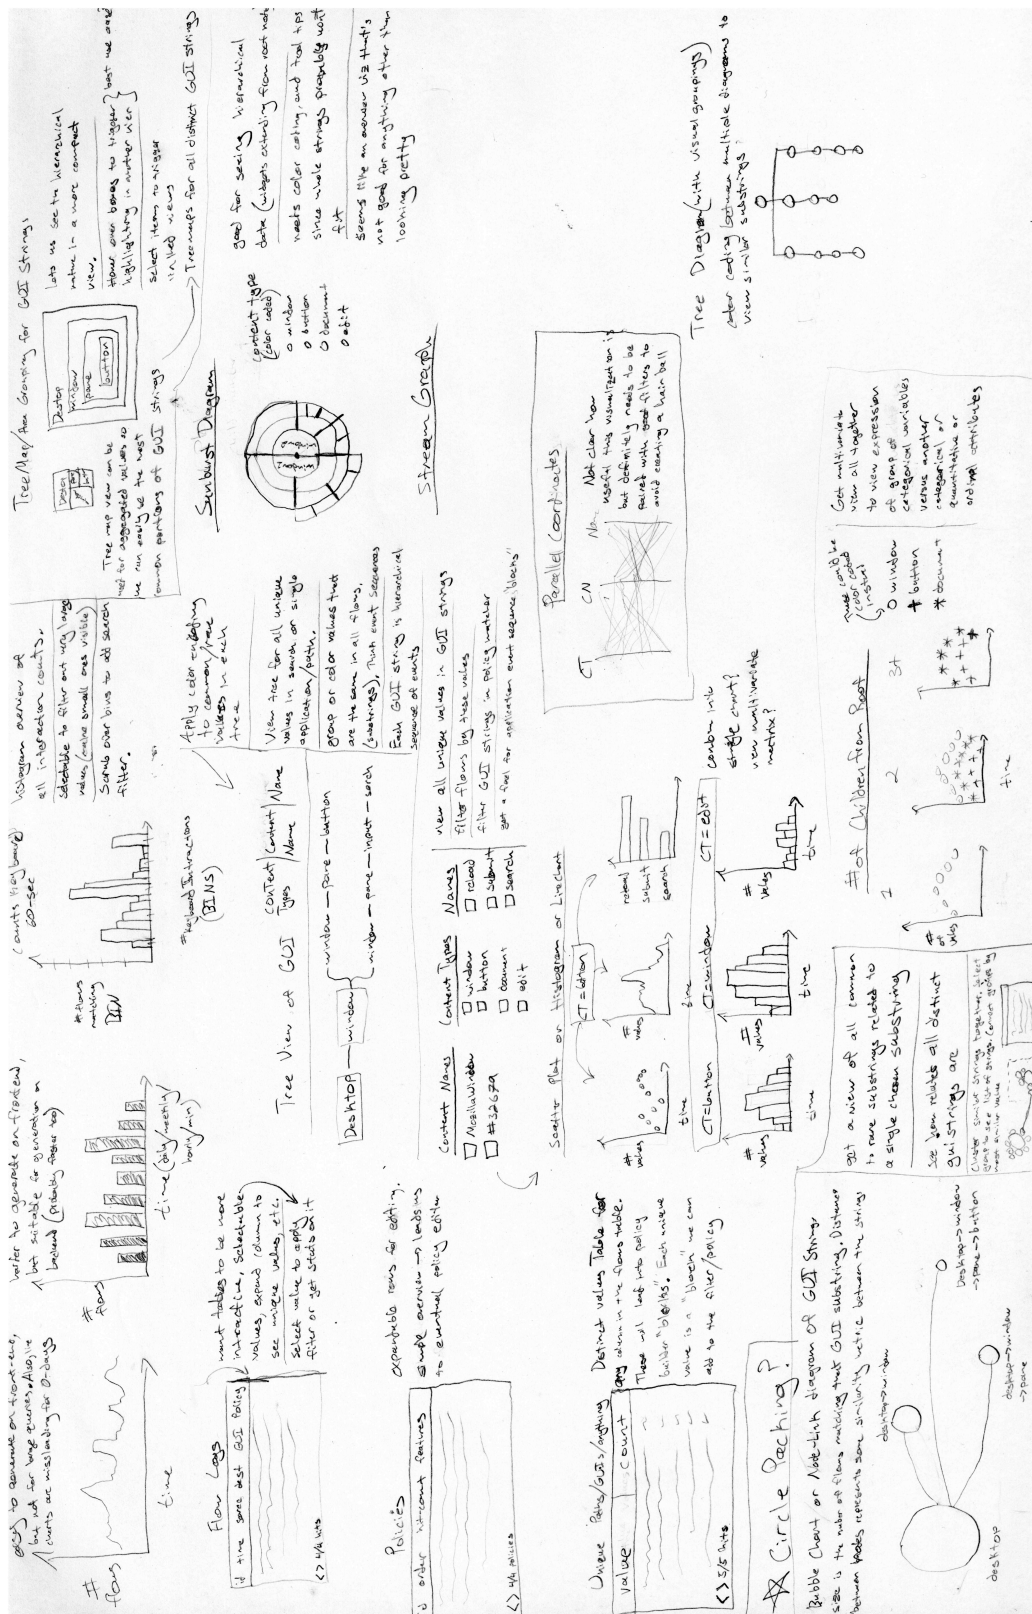 easy to generate on front-end,
but not for large queries. Also, line
charts are misleading for 0-days
#
flows
time
harder to generate on frontend,
but suitable for generation on
backend (probably faster too)
#
flows
time (daily/weekly/
hourly/min)
counts keyboard
60-sec
# flows
matching
BIN
# Keyboard Interactions
(BINS)
histogram overview of
all interaction counts.
selectable to filter out very large
values (make small ones visible)
Scrub over bins to add search
filter.
Tree/Map/Area Grouping for GUI Strings
Desktop
Tree map view can be
used for aggregated values so
we can easily see the most
common portions of GUI strings
Destop
window
pane
button
Lets us see the hierarchical
nature in a more compact
view.
Hover over boxes to trigger
highlighting in another view
best use case
select items to trigger
linked views
Treemaps for all distinct GUI strings
Flow Logs
id time source dest GUI Policy
<> 4/4 hits
want tables to be more
interactive, selectable
values, expand column to
see unique values, etc.
select value to apply
filter or get stats on it
Tree View of GUI
Content Types
Content Name
Name
Desktop
window
window - pane - button
window - pane - input - search
Apply color encoding
to common/rare
values in each
tree
View tree for all unique
values in search or single
application/path.
group or color values that
are the same in all flows.
(substrings), Think event sequences
Each GUI string is hierarchical
sequence of events
Sunburst Diagram
window
window
content type
(color coded)
o window
o button
o document
o edit
good for seeing hierarchical
data (widgets extending from root node)
needs color coding, and tool tips
since whole strings probably wont
fit
Stream Graph
Seems like an overview viz that's
not good for anything other than
looking pretty
Policies
id order hit-count features
<> 4/4 policies
expandable rows for editing.
simple overview → leads into
to eventual policy editor
Content Names
□ MozillaWindow
□ #32629
Content Types
□ window
□ button
□ document
□ edit
Names
□ reload
□ submit
□ search
view all unique values in GUI strings
filter flows by these values
filter GUI strings in policy matcher
get a feel for application event sequence "blocks"
Unique Paths/GUIs/anything
value count
<> 5/5 hits
Distinct values Table for
any column in the flows table.
These will lead into policy
builder "blocks". Each unique
value is a "block" we can
add to the filter/policy
Scatter Plot or Histogram or Linechart
CT=button
# values
time
# values
time
reload
submit
search
CT=button
# values
time
CT=window
# values
time
CT=edit
# values
time
combine into
single chart?
view multivariate
matrix?
Parallel Coordinates
CT
CN
Not clear how
useful this visualization is
but definitely needs to be
paired with good filters to
avoid creating a hair ball
Tree Diagram (with visual groupings)
color coding between multiple diagrams to
view similar substrings?
☆ Circle Packing?
Bubble Chart or Node-Link diagram of GUI Strings
size is the number of flows matching that GUI substring. Distance
between nodes represents some similarity metric between the strings
desktop
desktop->window
desktop->window
->pane
Desktop->window
->pane->button
get a view of all common
to rare substrings related to
a single chosen substring
see how related all distinct
gui strings are
Cluster similar strings together, select
group to see list of strings.
most similar value
# of Children from Root
1
2
3+
# of
vals
time
These could be
color coded
instead
o window
+ button
* document
Get multivariate
view all together
to view expression
of group of
categorical variables
versus another
categorical or
quantitative or
ordinal attributes